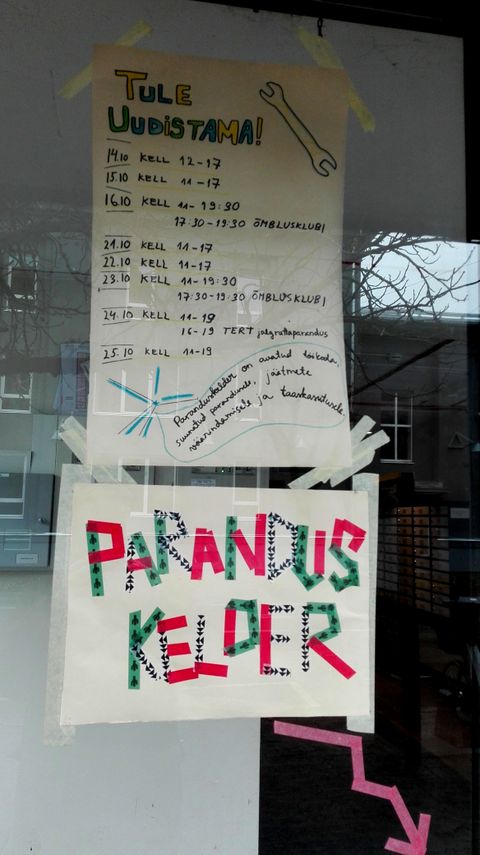 TULE
UUDISTAMA!
14.10 KELL 12-17
15.10 KELL 11-17
16.10 KELL 11-19:30
17:30-19:30 ÕMBLUSKLUBI
21.10 KELL 11-17
22.10 KELL 11-17
23.10 KELL 11-19:30
17:30-19:30 ÕMBLUSKLUBI
24.10 KELL 11-19
16-19 TERT jalgrattaparandus
25.10 KELL 11-19
Paranduskelder on avatud töökoda,
suunatud parandusele, jäätmete
väärindamisele ja taaskasutusele.
PARANDUS
KELDER